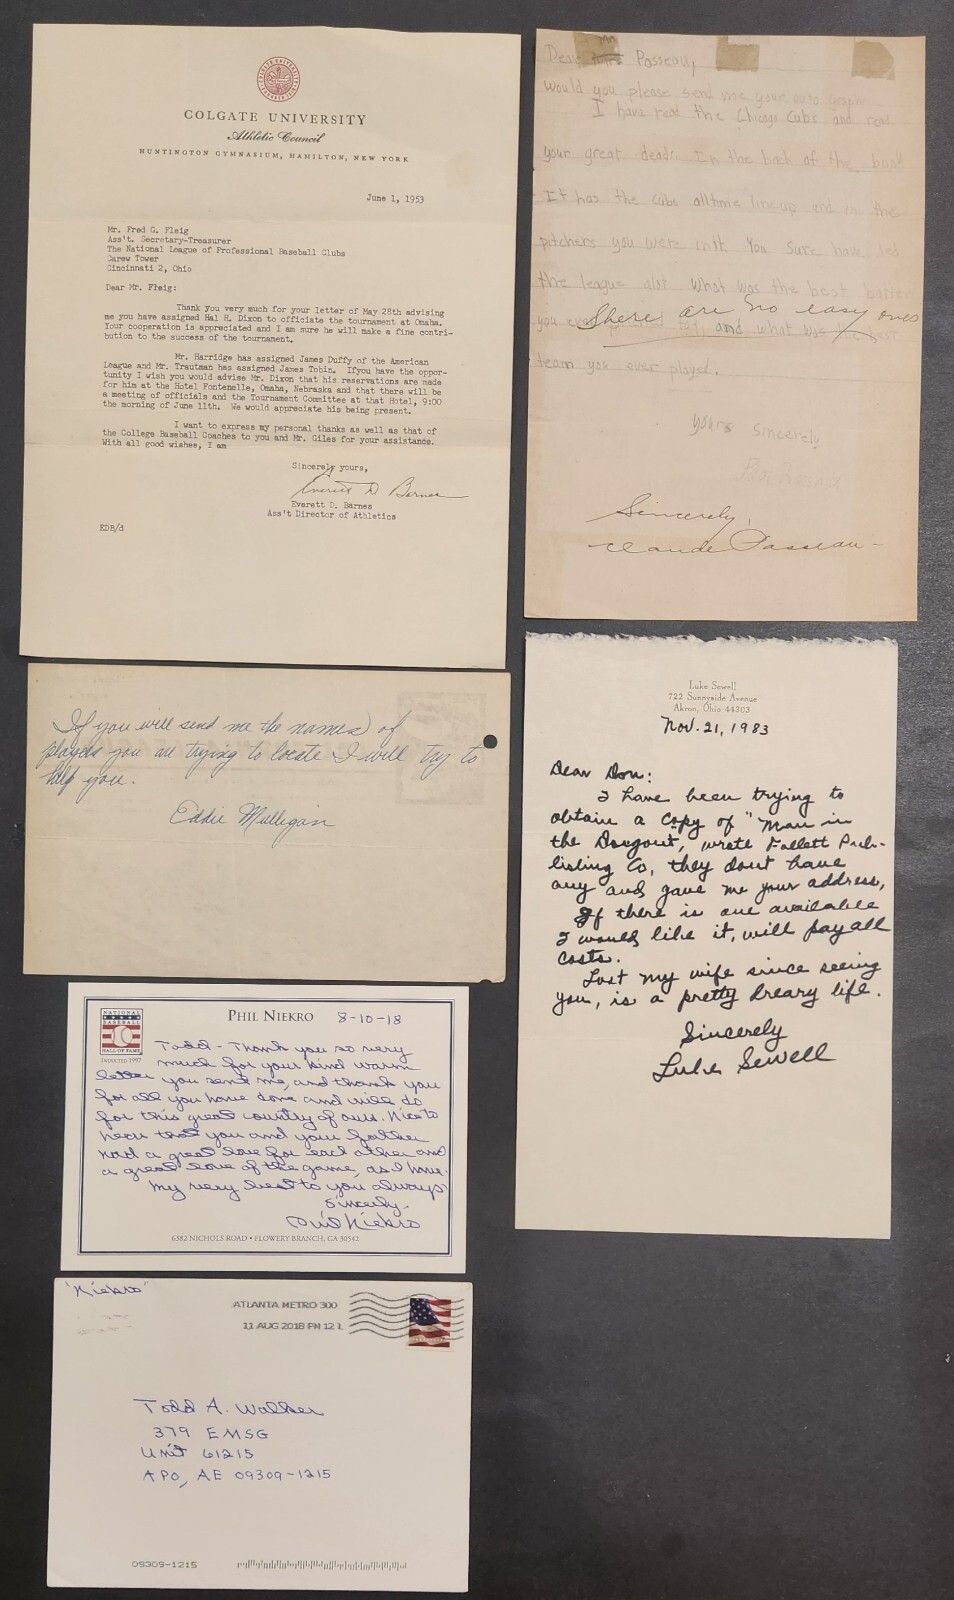 COLGATE UNIVERSITY
Athletic Council
HUNTINGTON GYMNASIUM, HAMILTON, NEW YORK
June 1, 1953
Mr. Fred G. Fleig
Ass't. Secretary-Treasurer
The National League of Professional Baseball Clubs
Carew Tower
Cincinnati 2, Ohio
Dear Mr. Fleig:
Thank you very much for your letter of May 28th advising
me you have assigned Hal H. Dixon to officiate the tournament at Omaha.
Your cooperation is appreciated and I am sure he will make a fine contri-
bution to the success of the tournament.
Mr. Harridge has assigned James Duffy of the American
League and Mr. Trautman has assigned James Tobin. Ifyou have the oppor-
tunity I wish you would advise Mr. Dixon that his reservations are made
for him at the Hotel Fontenelle, Omaha, Nebraska and that there will be
a meeting of officials and the Tournament Committee at that Hotel, 9:00
the morning of June 11th. We would appreciate his being present.
I want to express my personal thanks as well as that of
the College Baseball Coaches to you and Mr. Giles for your assistance.
With all good wishes, I am
Sincerely yours,
Everett D Barnes
Everett D. Barnes
Ass't Director of Athletics
EDB/d
Dear Mr Passeau,
Would you please send me your auto graph
I have read the Chicago Cubs and read
your great deads. In the back of the book
It has the Cubs alltime lineup and in the
pitchers you were inth. You sure have led
the league alot. What was the best batter
There are no easy ones
you ever and what was the best
team you ever played.
yours Sincerely
Sincerely,
Claude Passeau
If you will send me the names of
players you are trying to locate I will try to
help you.
Eddie Mulligan
Luke Sewell
722 Sunnyside Avenue
Akron, Ohio 44303
Nov. 21, 1983
Dear Don:
I have been trying to
obtain a copy of "Man in
the Dougout", wrote Follett Pub-
lishing Co, they dont have
any and gave me your address,
If there is one available
I would like it, will pay all
costs.
Lost my wife since seeing
you, is a pretty dreary life.
Sincerely
Luke Sewell
NATIONAL
BASEBALL
HALL OF FAME
INDUCTED 1997
PHIL NIEKRO 8-10-18
Todd - Thank you so very
much for your kind warm
letter you sent me, and thank you
for all you have done and will do
for this great country of ours. Nice to
hear that you and your father
had a great love for each other and
a great love of the game, as I have.
My very best to you always
Sincerely.
Phil Niekro
6382 NICHOLS ROAD • FLOWERY BRANCH, GA 30542
"Niekro"
ATLANTA METRO 300
11 AUG 2018 PM 12 L
Todd A. Walker
379 EMSG
Unit 61215
APO, AE 09309-1215
09309-1215